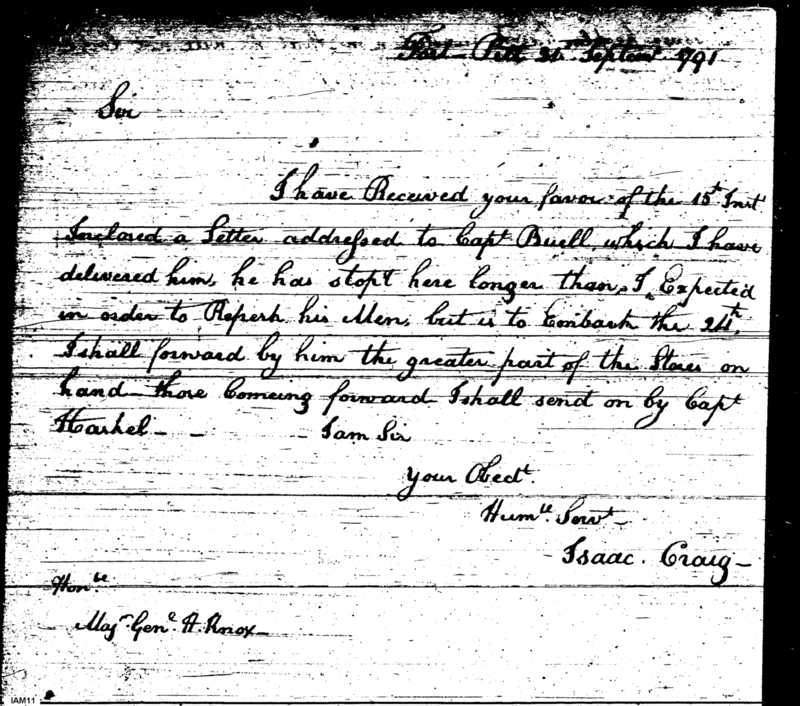 Fort Pitt 21st Septemr 1791
Sir
I have Received your favor of the 15t Inst
Inclosed a Letter addressed to Capt Buell which I have
delivered him, he has stopt here longer than I Expected
in order to Refresh his Men, but is to Embark the 24th,
I shall forward by him the greater part of the Stores on
hand — those Comeing forward I shall send on by Capt
Haskel — — — I am Sir
your Obedt.
Humle Servt
Isaac. Craig —
Honle
Majr. Genl H. Knox —
IAM11